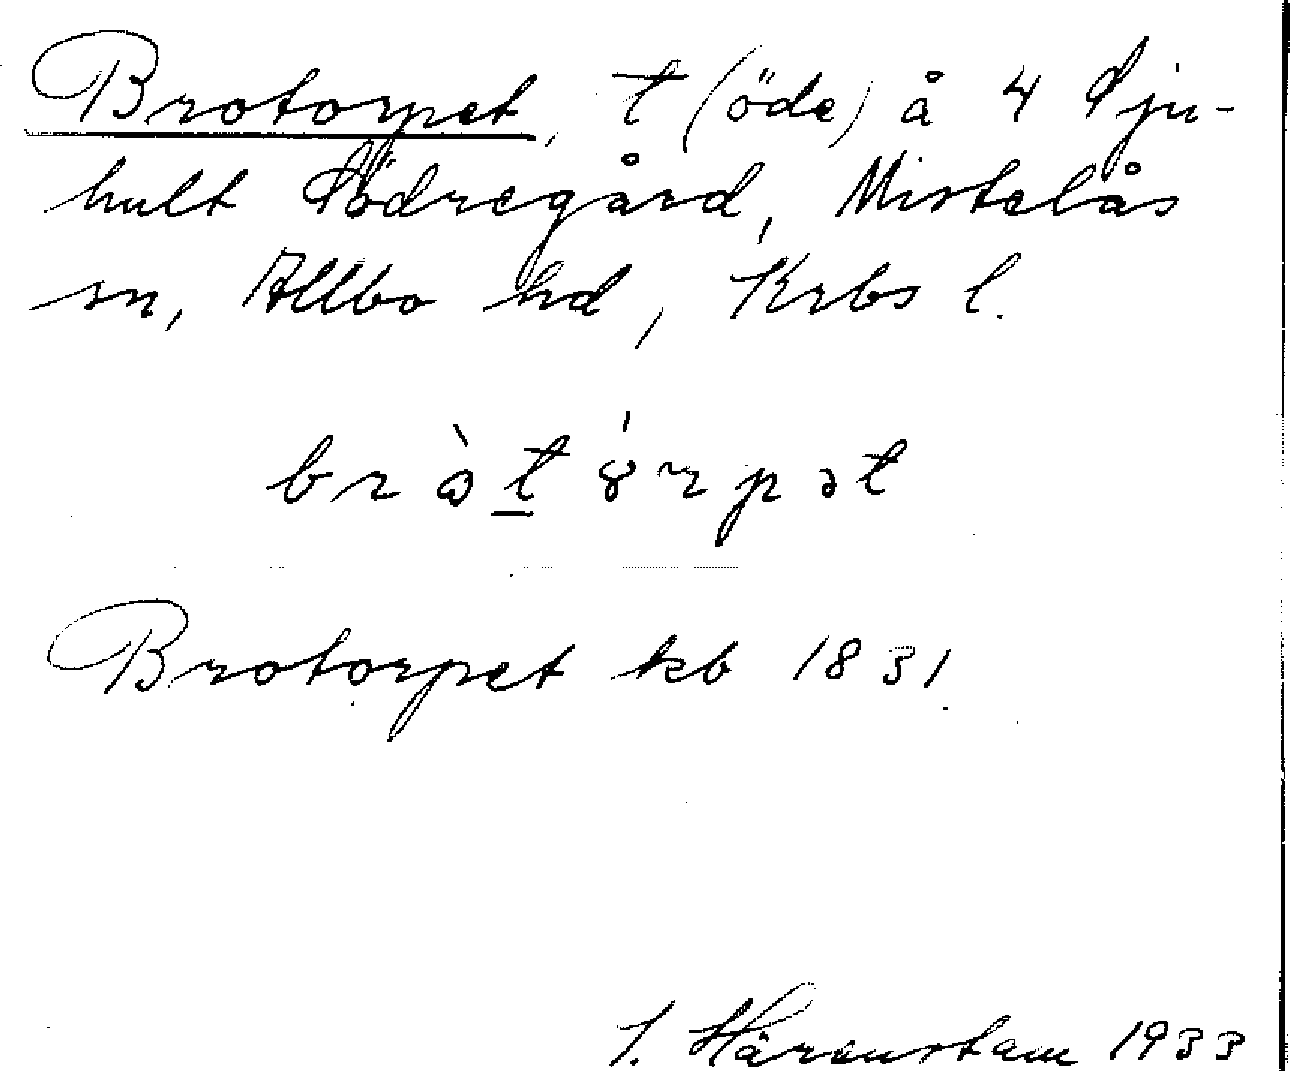 Brotorpet, t (öde) å 4 Sju-
hult Södregård, Mistelås
sn, Allbo hd, Krbs l.
bròtórpət
Brotorpet kb 1831.
Härenstam 1933